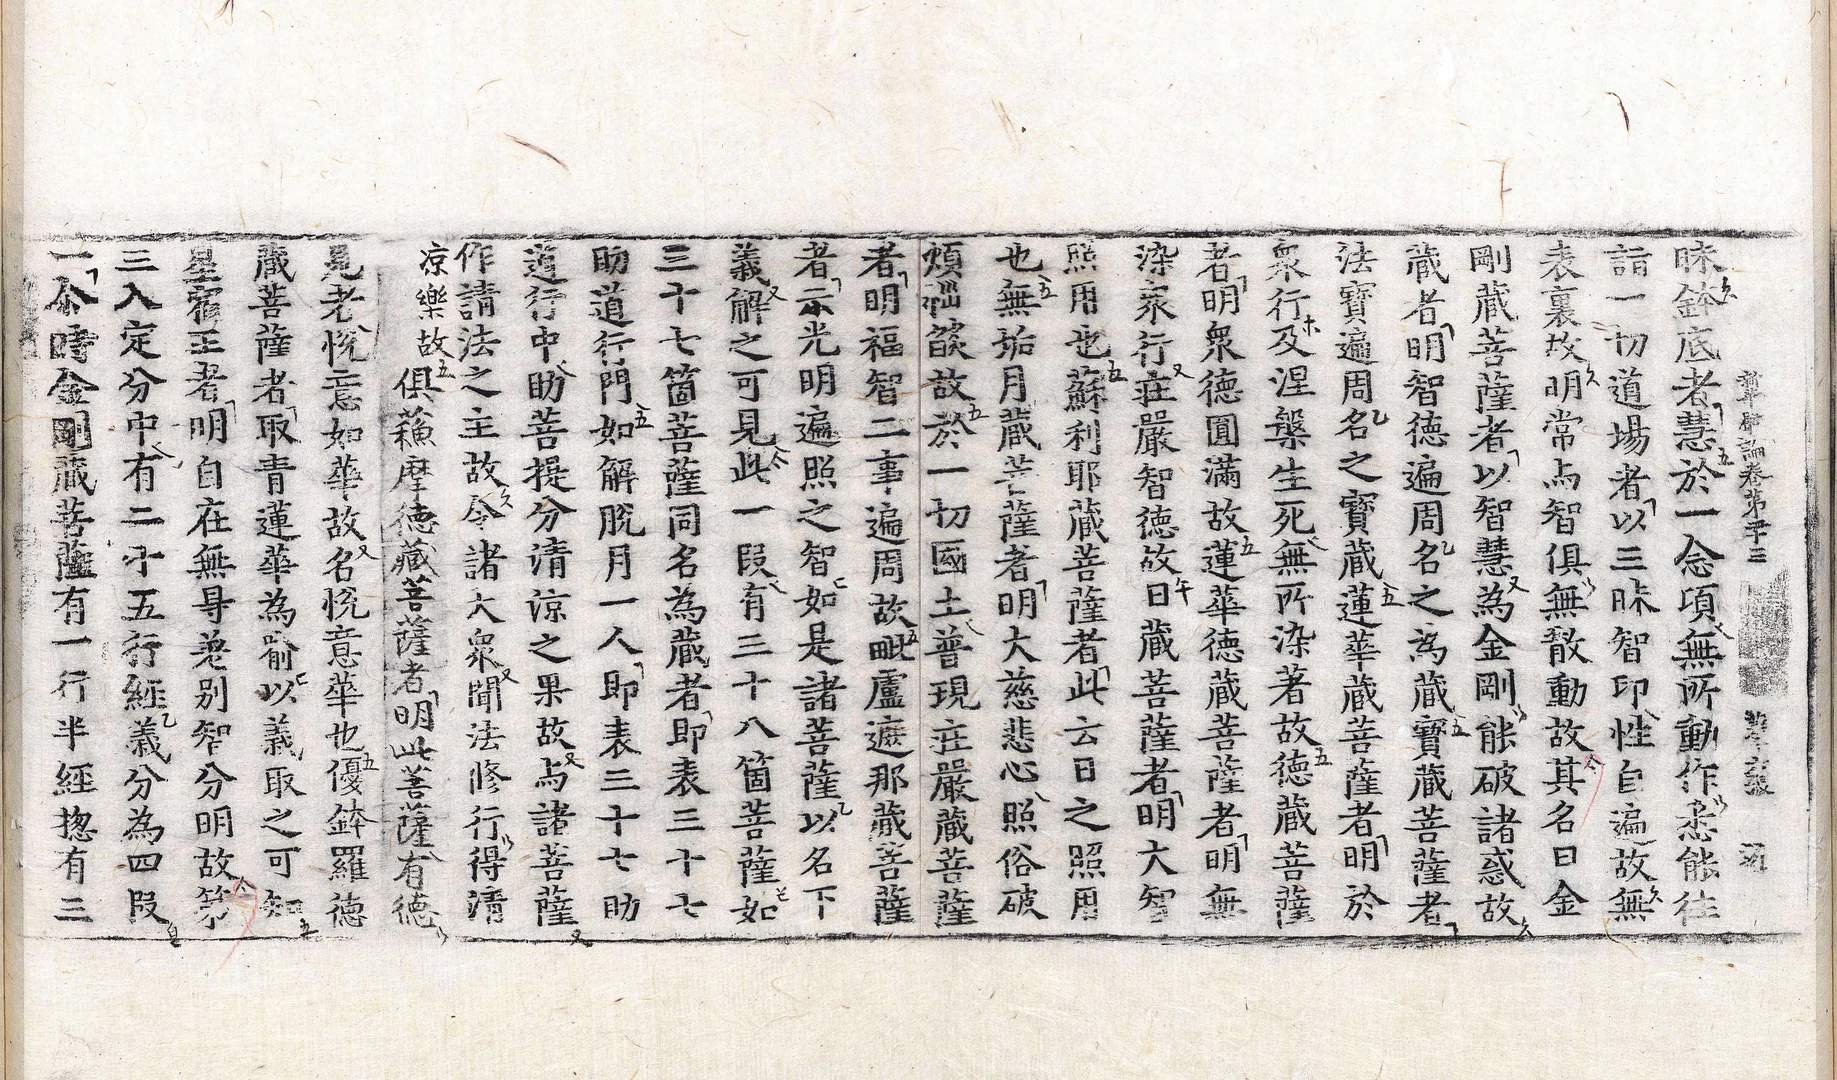 華嚴論卷第三十三
昧鉢底者慧於一念項無所動作悉能往
詣一切道場者以三昧智印性自遍故無
表裏故明常与智俱無散動故其名曰金
剛藏菩薩者以智慧為金剛能破諸惑故
藏者明智德遍周名之為藏寶藏菩薩者
法寶遍周名之寶藏蓮華藏菩薩者明於
衆行及涅槃生死無所染著故德藏菩薩
者明衆德圓滿故蓮華德藏菩薩者明無
染衆行莊嚴智德故日藏菩薩者明大智
照用也蘇利耶藏菩薩者此云日之照用
也無垢月藏菩薩者明大慈悲心照俗破
煩惱𦦨故於一切國土普現莊嚴藏菩薩
者明福智二事遍周故毗盧遮那藏菩薩
者示光明遍照之智如是諸菩薩以名下
義解之可見此一段有三十八箇菩薩如
三十七箇菩薩同名為藏者即表三十七
助道行門如解脫月一人即表三十七助
道行中助菩提分清涼之果故与諸菩薩
作請法之主故令諸大衆聞法修行得清
凉樂故俱蘓摩德藏菩薩者明此菩薩有德
見者悅意如華故名悅意華也優鉢羅德
藏菩薩者取青蓮華為喻以義取之可知
星宿王者明自在無㝵差別智分明故第
三入定分中有二十五行經義分為四段
一尒時金剛藏菩薩有一行半經揔有三